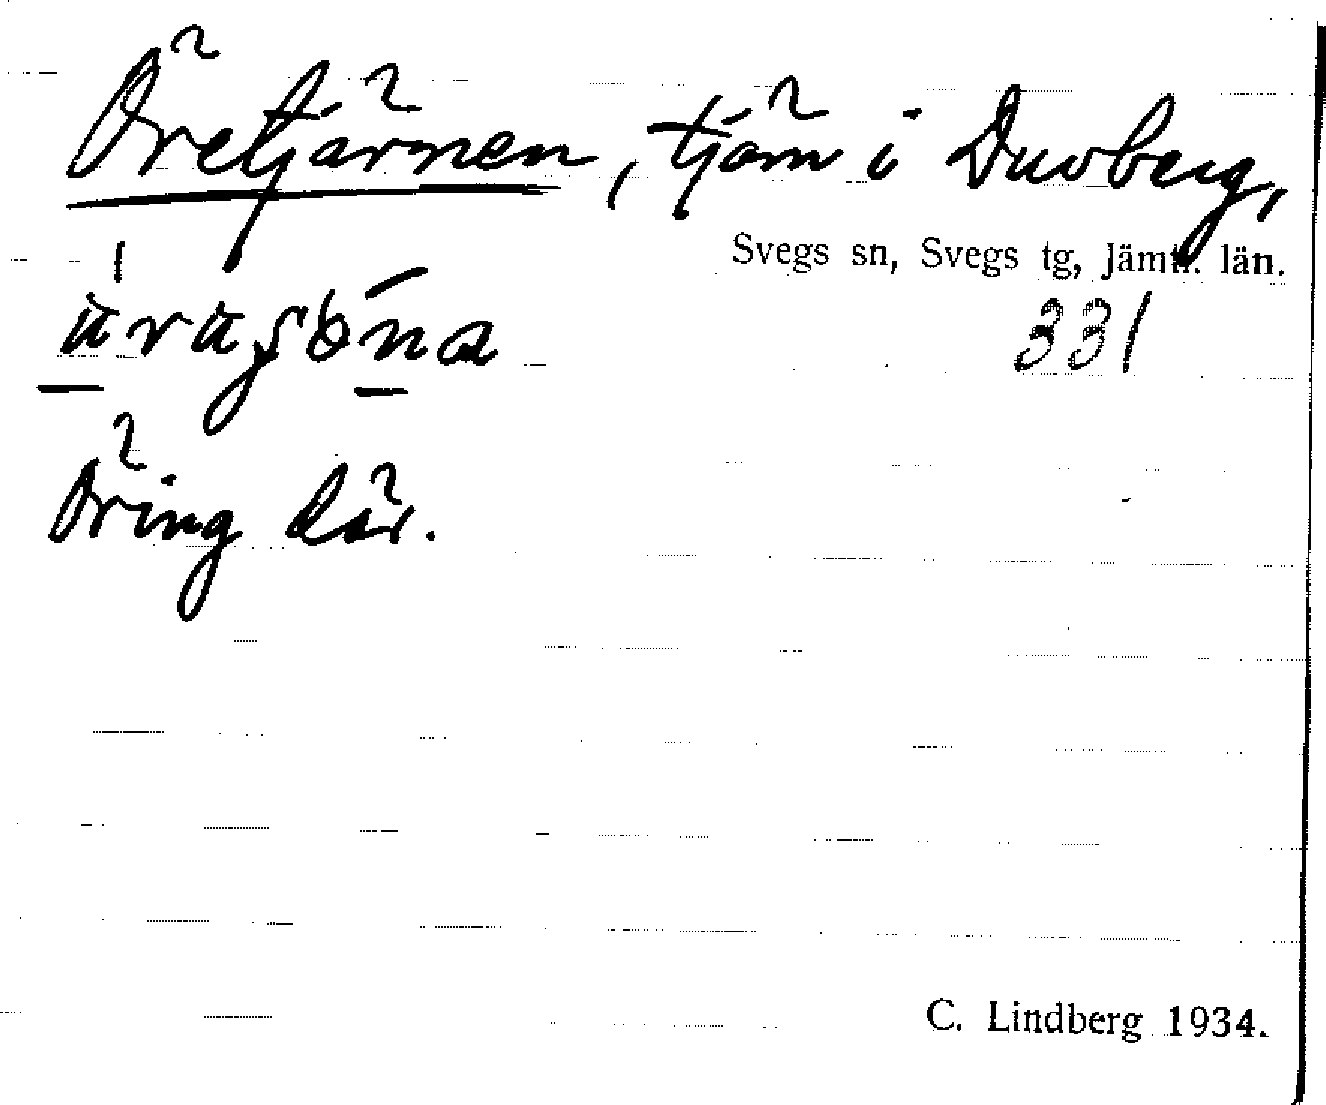 Öretjärnen, tjärn i Duvberg,
Svegs sn, Svegs tg, Jämtl. län.
331
Öring där.
C. Lindberg 1934.